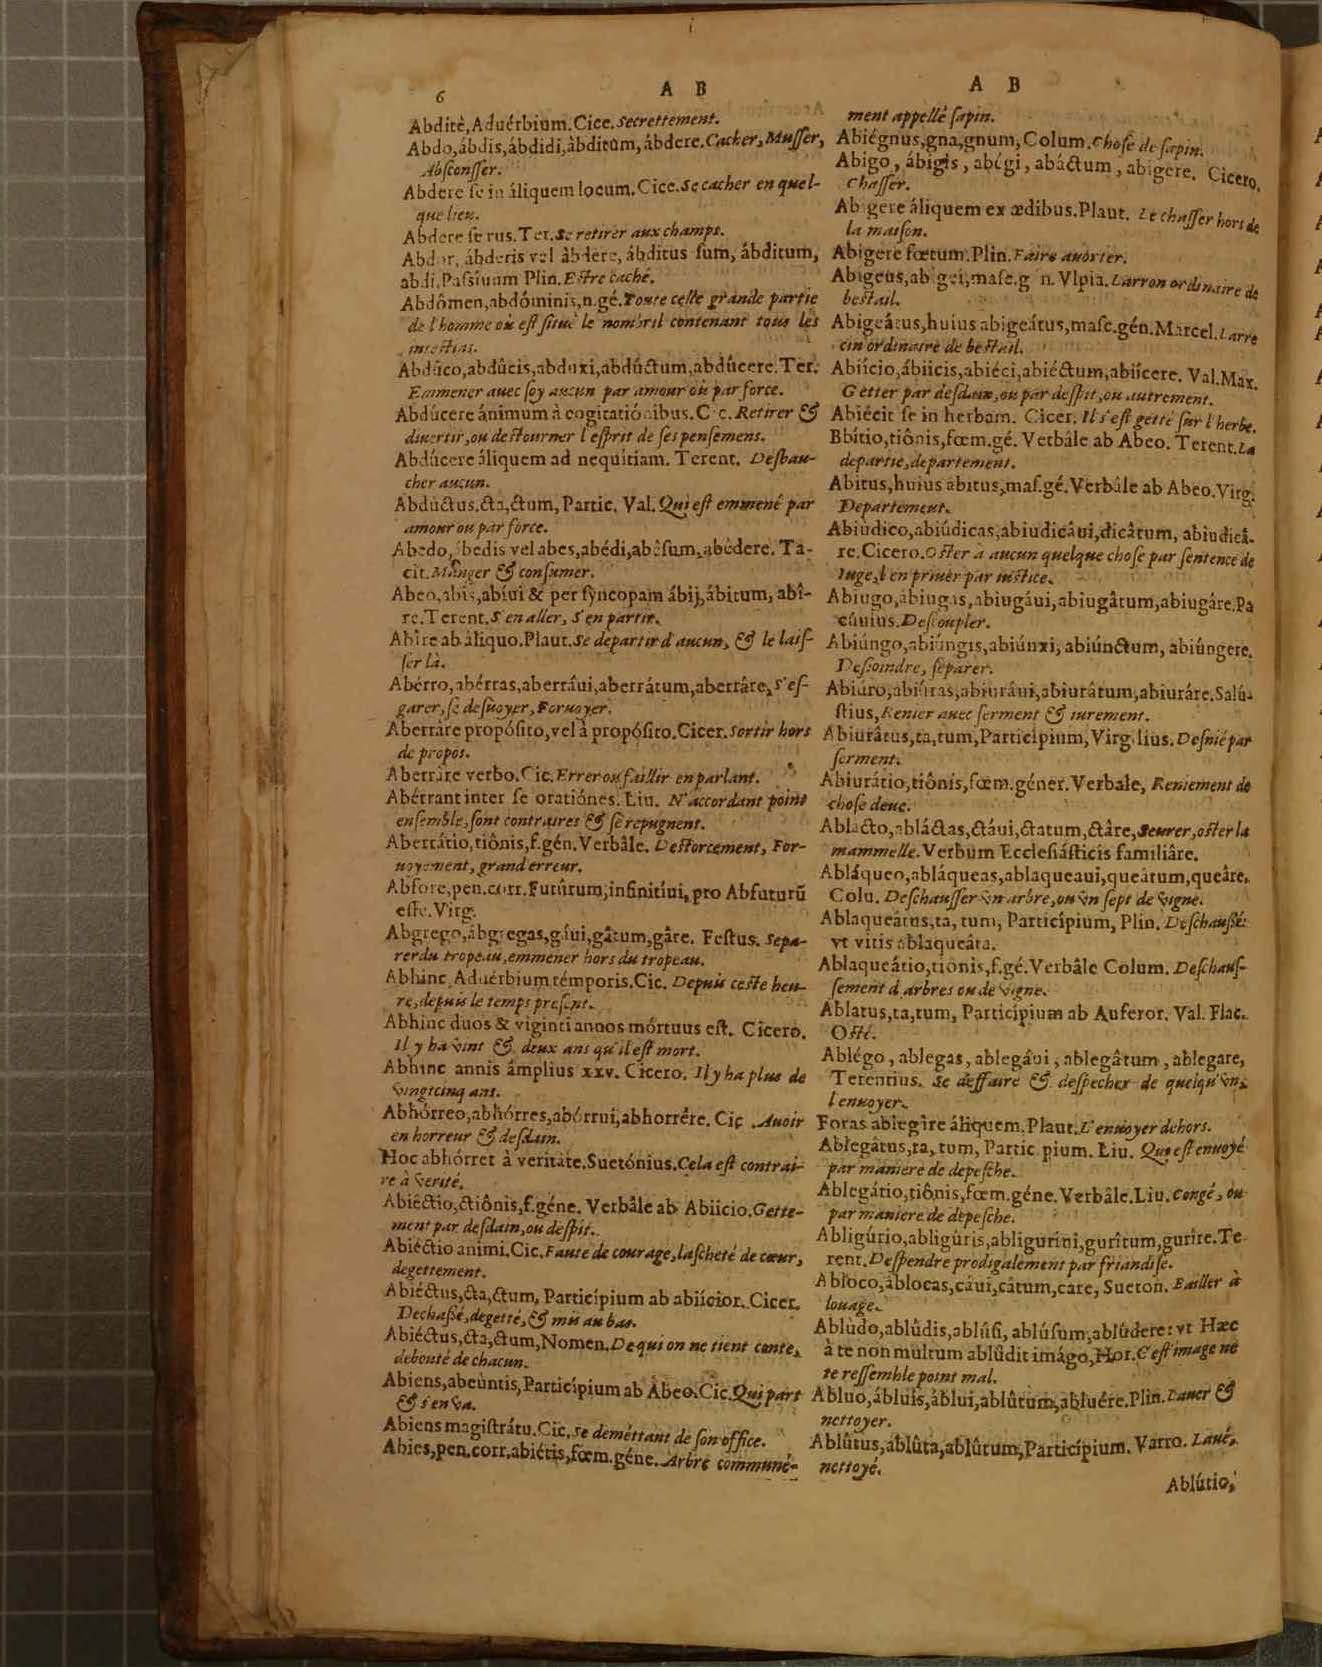 6
A B
Abditè, Aduérbium. Cice. Secrettement.
Abdo, ábdis, ábdidi, ábditum, ábdere. Cacher, Muſſer,
Abſconſſer.
Abdere ſe in áliquem locum. Cice. Se cacher en quel-
que lieu.
Abdere ſe rus. Ter. Se retirer aux champs.
Abdor, ábderis vel àbdere, ábditus ſum, ábditum,
abdi, Paſsiuum Plin. Eſtre caché.
Abdômen, abdóminis, n. gé. Toute celle grande partie
de l'homme où eſt ſitué le nombril contenant tous les
inteſtins.
Abdúco, abdûcis, abduxi, abdúctum, abdûcere. Ter.
Emmener auec ſoy aucun par amour ou par force.
Abdúcere ánimum à cogitatiónibus. Cic. Retirer &
diuertir, ou deſtourner l'eſprit de ſes penſemens.
Abdúcere áliquem ad nequitiam. Terent. Deſbau-
cher aucun.
Abdúctus, cta, ctum, Partic. Val. Qui eſt emmené par
amour ou par force.
Abedo, ábedis vel abes, abédi, abêſum, abédere. Ta-
cit. Manger & conſumer.
Abeo, abis, abíui & per ſyncopam ábij, ábitum, abî-
re. Terent. S'en aller, S'en partir.
Abîre ab áliquo. Plaut. Se departir d'aucun, & le laiſ-
ſer là.
Abérro, abérras, aberráui, aberrátum, aberrâre, S'eſ-
garer, ſe deſuoyer, Foruoyer.
Aberráre propóſito, vel à propóſito. Cicer. Sortir hors
de propos.
Aberráre verbo. Cic. Errer ou faillir en parlant.
Abérrant inter ſe oratiónes. Liu. N'accordant point
enſemble, ſont contraires & ſe repugnent.
Aberrátio, tiônis, f. gén. Verbâle. Deſtorcement, For-
uoyement, grand erreur.
Abfore, pen. corr. Futûrum, infinitíui, pro Abfuturũ
eſſe. Virg.
Abgrego, ábgregas, gáui, gâtum, gâre. Feſtus. Sepa-
rer du tropeau, emmener hors du tropeau.
Abhinc, Aduérbium témporis. Cic. Depuis ceſte heu-
re, depuis le temps preſent.
Abhinc duos & viginti annos mórtuus eſt. Cicero.
Il y ha vint & deux ans qu'il eſt mort.
Abhinc annis ámplius xxv. Cicero. Il y ha plus de
vingtcinq ans.
Abhórreo, abhórres, abórrui, abhorrére. Cic. Auoir
en horreur & deſdain.
Hoc abhórret à veritâte. Suetónius. Cela eſt contrai-
re à verité.
Abiéctio, ctiônis, f. géne. Verbâle ab Abiicio. Gette-
ment par deſdain, ou deſpit.
Abiéctio animi. Cic. Faute de courage, laſcheté de cœur,
degettement.
Abiéctus, cta, ctum, Participium ab abiícior. Cicer.
Dechaſſé, degetté, & mis au bas.
Abiéctus, cta, ctum, Nomen. De qui on ne tient conte,
debouté de chacun.
Abiens, abeùntis, Participium ab Abeo. Cic. Qui part
& s'en va.
Abiens magiſtrátu. Cic. Se deméttant de ſon office.
Abies, pen. corr. abiétis, fœm. géne. Arbre communé-
A B
ment appellé ſapin.
Abiégnus, gna, gnum, Colum. Choſe de ſapin.
Abigo, ábigis, abégi, abáctum, abigere. Cicero.
Chaſſer.
Abigere áliquem ex ædibus. Plaut. Le chaſſer hors de
la maiſon.
Abigere fœtum. Plin. Faire auorter.
Abigeus, abigei, maſc. gén. Vlpia. Larron ordinaire de
beſtail.
Abigeátus, huius abigeátus, maſc. gén. Marcel. Larre
cin ordinaire de beſtail.
Abiício, ábiicis, abiéci, abiéctum, abiícere. Val. Max.
Getter par deſdain, ou par deſpit, ou autrement.
Abiécit ſe in herbam. Cicer. Il s'eſt getté ſur l'herbe.
Bbítio, tiônis, fœm. gé. Verbâle ab Abeo. Terent. La
departie, departement.
Abitus, huius abitus, maſ. gé. Verbâle ab Abeo. Virg.
Departement.
Abiùdico, abiúdicas, abiudicâui, dicâtum, abiudicâ-
re. Cicero. Oſter à aucun quelque choſe par ſentence de
Iuge, l'en priuer par iuſtice.
Abiugo, ábiugas, abiugáui, abiugâtum, abiugáre. Pa
cúuius. Deſcoupler.
Abiúngo, abiúngis, abiúnxi, abiúnctum, abiûngere.
Deſioindre, ſeparer.
Abiúro, abiúras, abiuráui, abiurâtum, abiuráre. Salú-
ſtius, Renier auec ſerment & iurement.
Abiurâtus, ta, tum, Participium, Virgilius. Deſnié par
ſerment.
Abiurátio, tiônis, fœm. géner. Verbale, Reniement de
choſe deue.
Ablácto, abláctas, ctáui, ctatum, ctâre, Seurer, oſter la
mammelle. Verbum Eccleſiáſticis familiâre.
Abláqueo, abláqueas, ablaqueaui, queátum, queâre.
Colu. Deſchauſſer vn arbre, ou vn ſept de vigne.
Ablaqueâtus, ta, tum, Participium, Plin. Deſchauſſé:
vt vitis ablaqueáta.
Ablaqueátio, tiônis, f. gé. Verbâle Colum. Deſchauſ-
ſement d'arbres ou de vigne.
Ablatus, ta, tum, Participium ab Auferor. Val. Flac.
Oſté.
Ablégo, ablegas, ablegáui, ablegâtum, ablegare,
Terentius. Se deffaire & deſpecher de quelqu'vn,
l'enuoyer.
Foras ablegâre áliquem. Plaut. L'enuoyer dehors.
Ablegâtus, ta, tum, Participium. Liu. Qui eſt enuoyé
par maniere de depeſche.
Ablegátio, tiônis, fœm. géne. Verbâle. Liu. Congé, ou
par maniere de depeſche.
Abligúrio, abligúris, abligurini, gurîtum, gurîre. Te-
rent. Deſpendre prodigalement par friandiſe.
Abloco, áblocas, cáui, câtum, care, Sueton. Bailler à
louage.
Abludo, ablûdis, ablúſi, ablúſum, ablûdere: vt Hæc
à te non multum ablûdit imágo, Hor. C'eſt image ne
te reſſemble point mal.
Abluo, ábluis, áblui, ablûtum, abluére. Plin. Lauer &
nettoyer.
Ablûtus, áblûta, ablûtum, Participium. Varro. Laué,
nettoyé.
Ablútio,